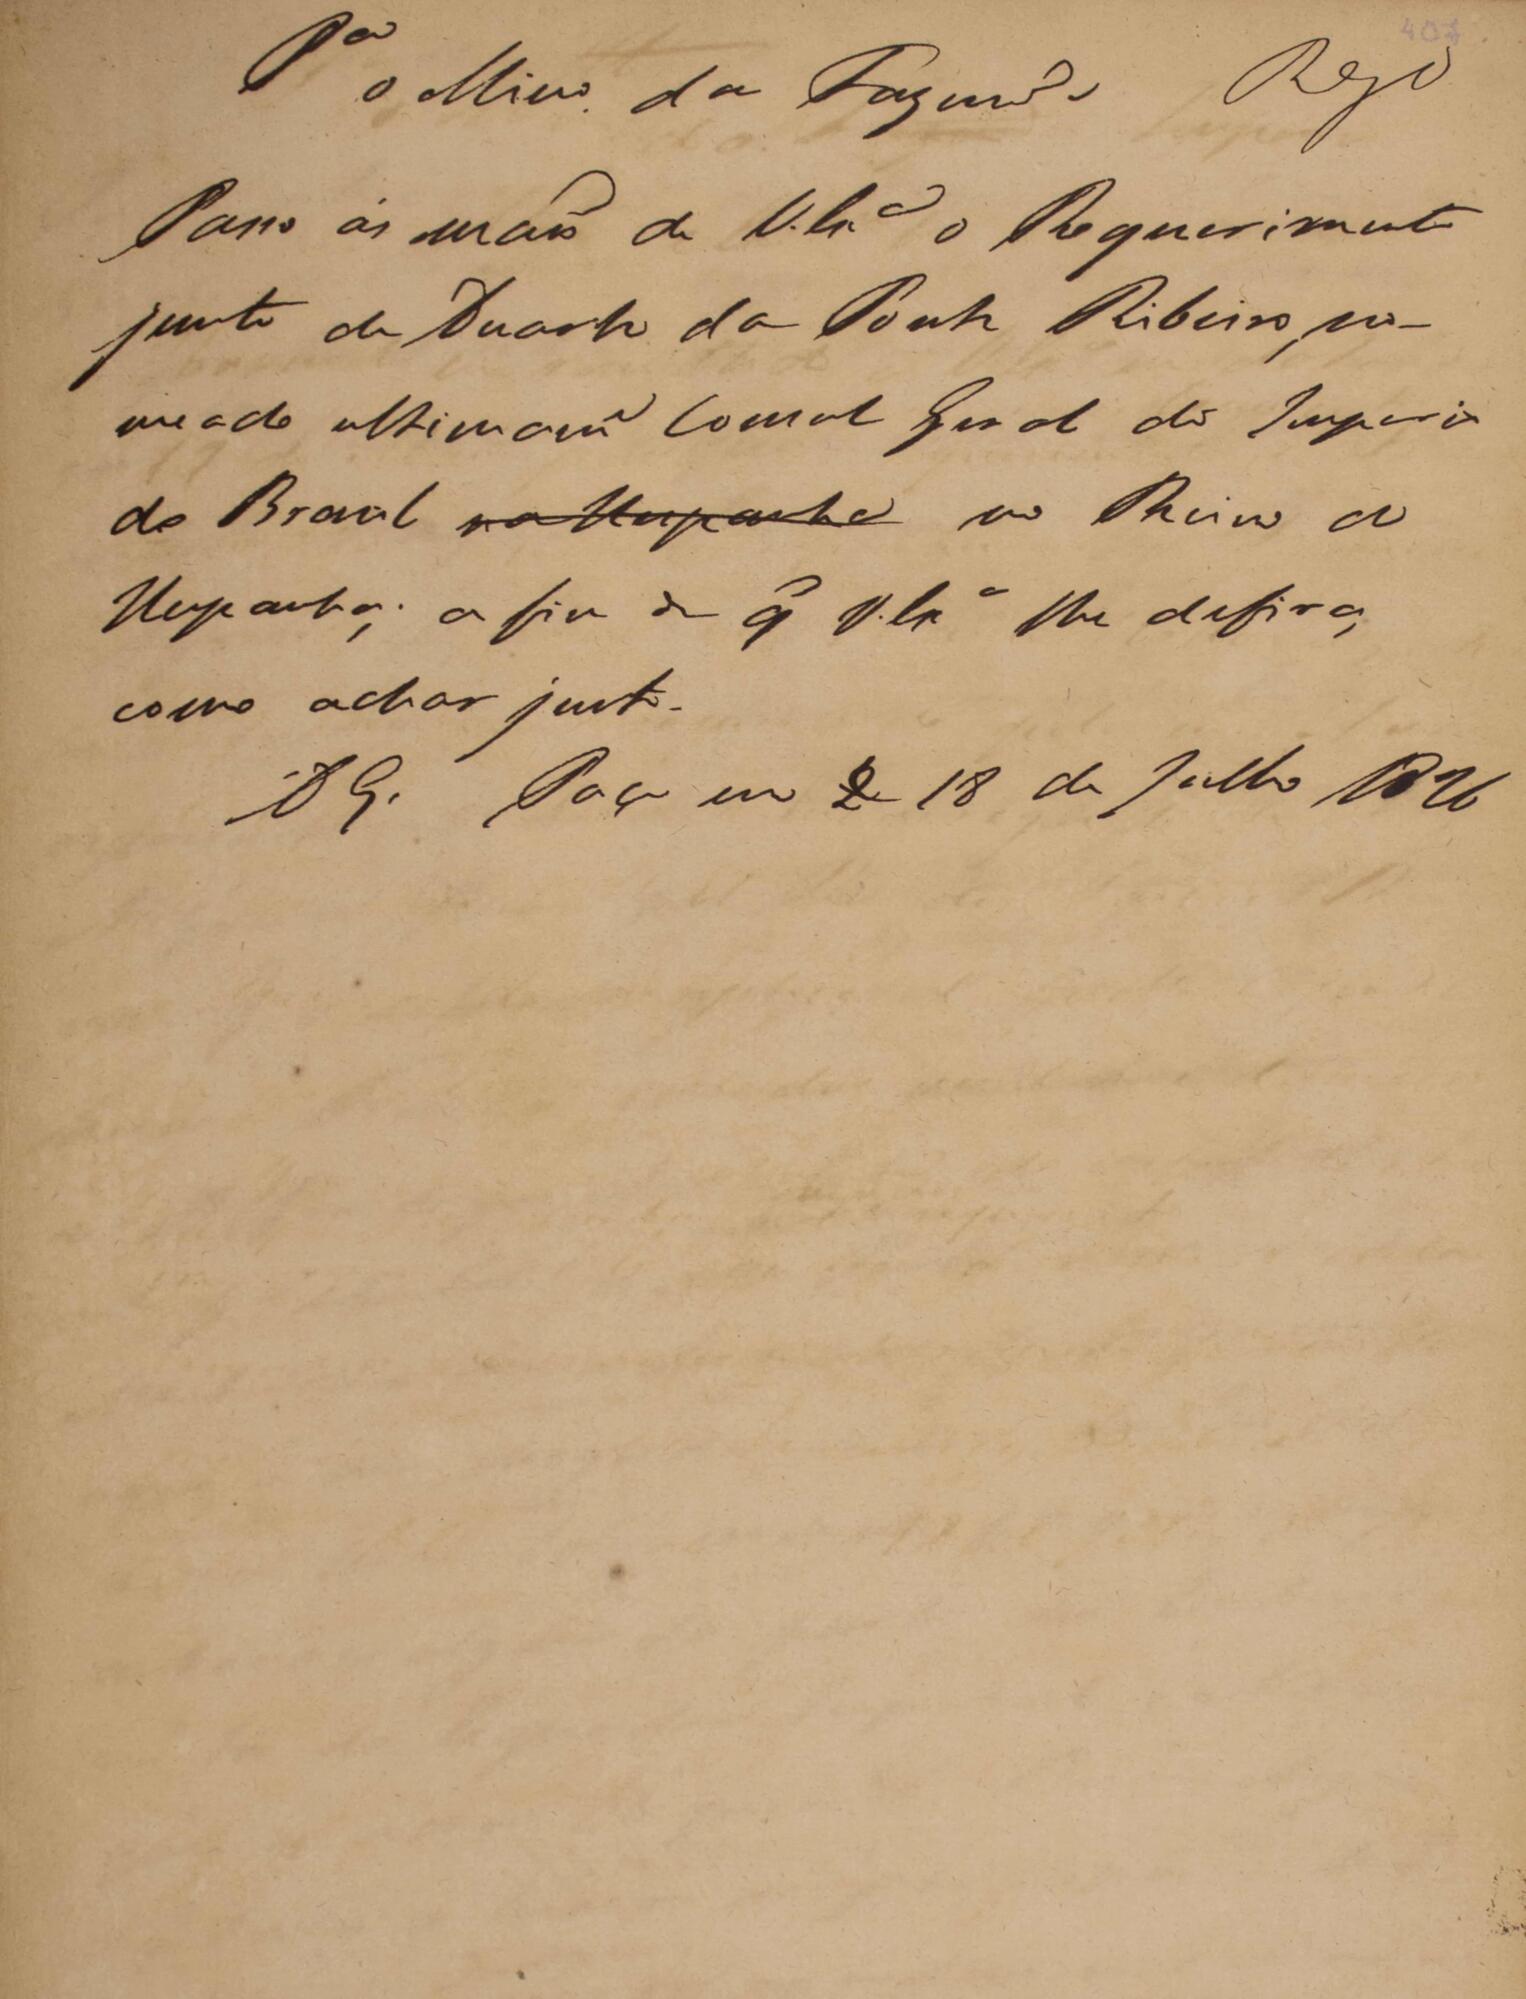 407
Pa o Mino. da Fazenda Rego
Passo ás maõs de V. Exa o Requerimento
junto de Duarte da Ponte Ribeiro, no-
meado ultimame Consul Geral do Imperio
do Brasil na Hespanha no Reino de
Hespanha; a fim de q̃ V. Exa lhe defira,
como achar justo.
D G. Paço em 2 18 de Julho 1826